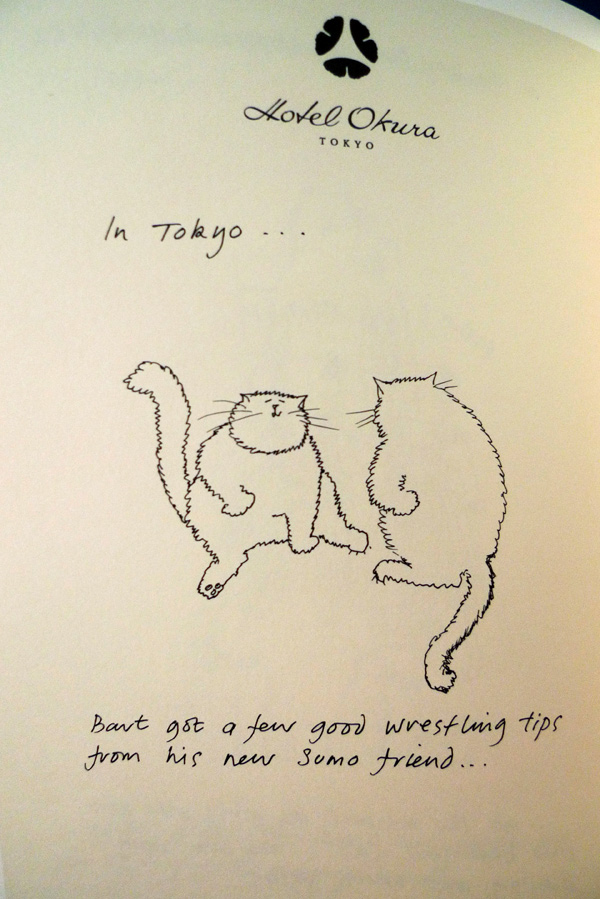 Hotel Okura
TOKYO
In Tokyo ...
Bart got a few good wrestling tips
from his new Sumo friend...